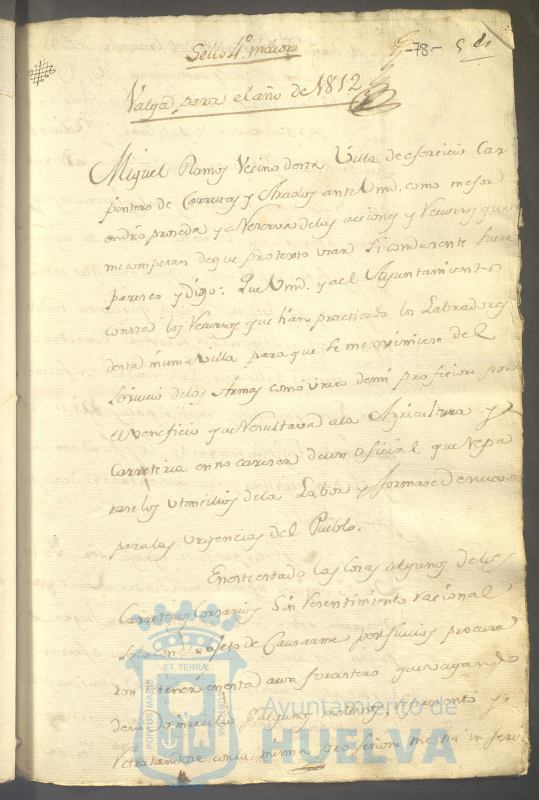 Sello 4.º maior
-78-
Valga para el año de 1812
Miguel Ramos Vecino desta Villa de exercicio Car
pintero de Carretas y Arados ante Vmd. como mejor
proseda y a Reserva de los acciones y Recursos que
me competan de que protexto usar si conducente fuera
paresco y digo: Que Vmd. y a el Ayuntamiento
consta los Recursos que han practicado los Labradores
desta misma villa para que se me eximiese del
servicio de las Armas como unico de mi profesion por
el veneficio que Resultava a la Agricultura y
Carreteria en no careser de un oficial que repa
rase los utencilios de la Labor y formase de nuevo
para las urgencias del Pueblo.
En este estado las cosas algunos de los
Carreteros Cosarios sin Resentimiento racional
solo con objeto de Causarme perjuicios procura
ron a un forastero que vagando
de su domicilio algunos
con la misma profesion me ha
ET TERRÆ
PORTUS MARIS
CUSTODIA
Ayuntamiento de
HUELVA